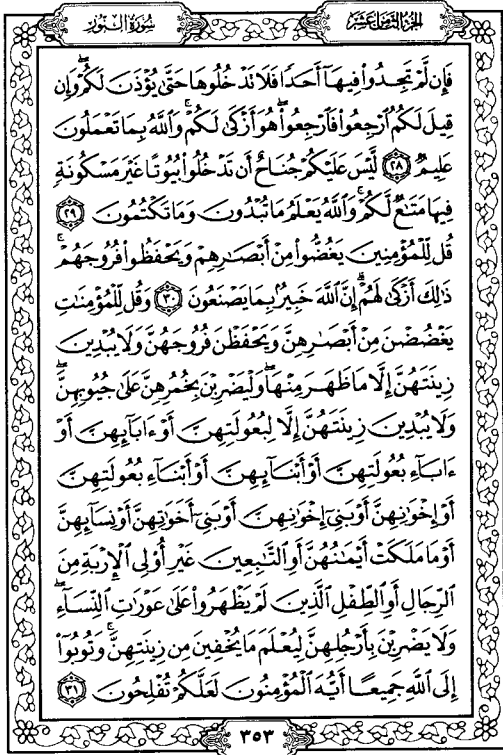 سُورَةُ النُّورِ
الجُزْءُ الثَّامِنَ عَشَرَ
فَإِن لَّمْ تَجِدُوا۟ فِيهَآ أَحَدًا فَلَا تَدْخُلُوهَا حَتَّىٰ يُؤْذَنَ لَكُمْ ۖ وَإِن
قِيلَ لَكُمُ ٱرْجِعُوا۟ فَٱرْجِعُوا۟ ۖ هُوَ أَزْكَىٰ لَكُمْ ۚ وَٱللَّهُ بِمَا تَعْمَلُونَ
عَلِيمٌ ﴿٢٨﴾ لَّيْسَ عَلَيْكُمْ جُنَاحٌ أَن تَدْخُلُوا۟ بُيُوتًا غَيْرَ مَسْكُونَةٍ
فِيهَا مَتَـٰعٌ لَّكُمْ ۚ وَٱللَّهُ يَعْلَمُ مَا تُبْدُونَ وَمَا تَكْتُمُونَ ﴿٢٩﴾
قُل لِّلْمُؤْمِنِينَ يَغُضُّوا۟ مِنْ أَبْصَـٰرِهِمْ وَيَحْفَظُوا۟ فُرُوجَهُمْ ۚ
ذَٰلِكَ أَزْكَىٰ لَهُمْ ۗ إِنَّ ٱللَّهَ خَبِيرٌۢ بِمَا يَصْنَعُونَ ﴿٣٠﴾ وَقُل لِّلْمُؤْمِنَـٰتِ
يَغْضُضْنَ مِنْ أَبْصَـٰرِهِنَّ وَيَحْفَظْنَ فُرُوجَهُنَّ وَلَا يُبْدِينَ
زِينَتَهُنَّ إِلَّا مَا ظَهَرَ مِنْهَا ۖ وَلْيَضْرِبْنَ بِخُمُرِهِنَّ عَلَىٰ جُيُوبِهِنَّ ۖ
وَلَا يُبْدِينَ زِينَتَهُنَّ إِلَّا لِبُعُولَتِهِنَّ أَوْ ءَابَآئِهِنَّ أَوْ
ءَابَآءِ بُعُولَتِهِنَّ أَوْ أَبْنَآئِهِنَّ أَوْ أَبْنَآءِ بُعُولَتِهِنَّ
أَوْ إِخْوَٰنِهِنَّ أَوْ بَنِىٓ إِخْوَٰنِهِنَّ أَوْ بَنِىٓ أَخَوَٰتِهِنَّ أَوْ نِسَآئِهِنَّ
أَوْ مَا مَلَكَتْ أَيْمَـٰنُهُنَّ أَوِ ٱلتَّـٰبِعِينَ غَيْرِ أُو۟لِى ٱلْإِرْبَةِ مِنَ
ٱلرِّجَالِ أَوِ ٱلطِّفْلِ ٱلَّذِينَ لَمْ يَظْهَرُوا۟ عَلَىٰ عَوْرَٰتِ ٱلنِّسَآءِ ۖ
وَلَا يَضْرِبْنَ بِأَرْجُلِهِنَّ لِيُعْلَمَ مَا يُخْفِينَ مِن زِينَتِهِنَّ ۚ وَتُوبُوٓا۟
إِلَى ٱللَّهِ جَمِيعًا أَيُّهَ ٱلْمُؤْمِنُونَ لَعَلَّكُمْ تُفْلِحُونَ ﴿٣١﴾
٣٥٣